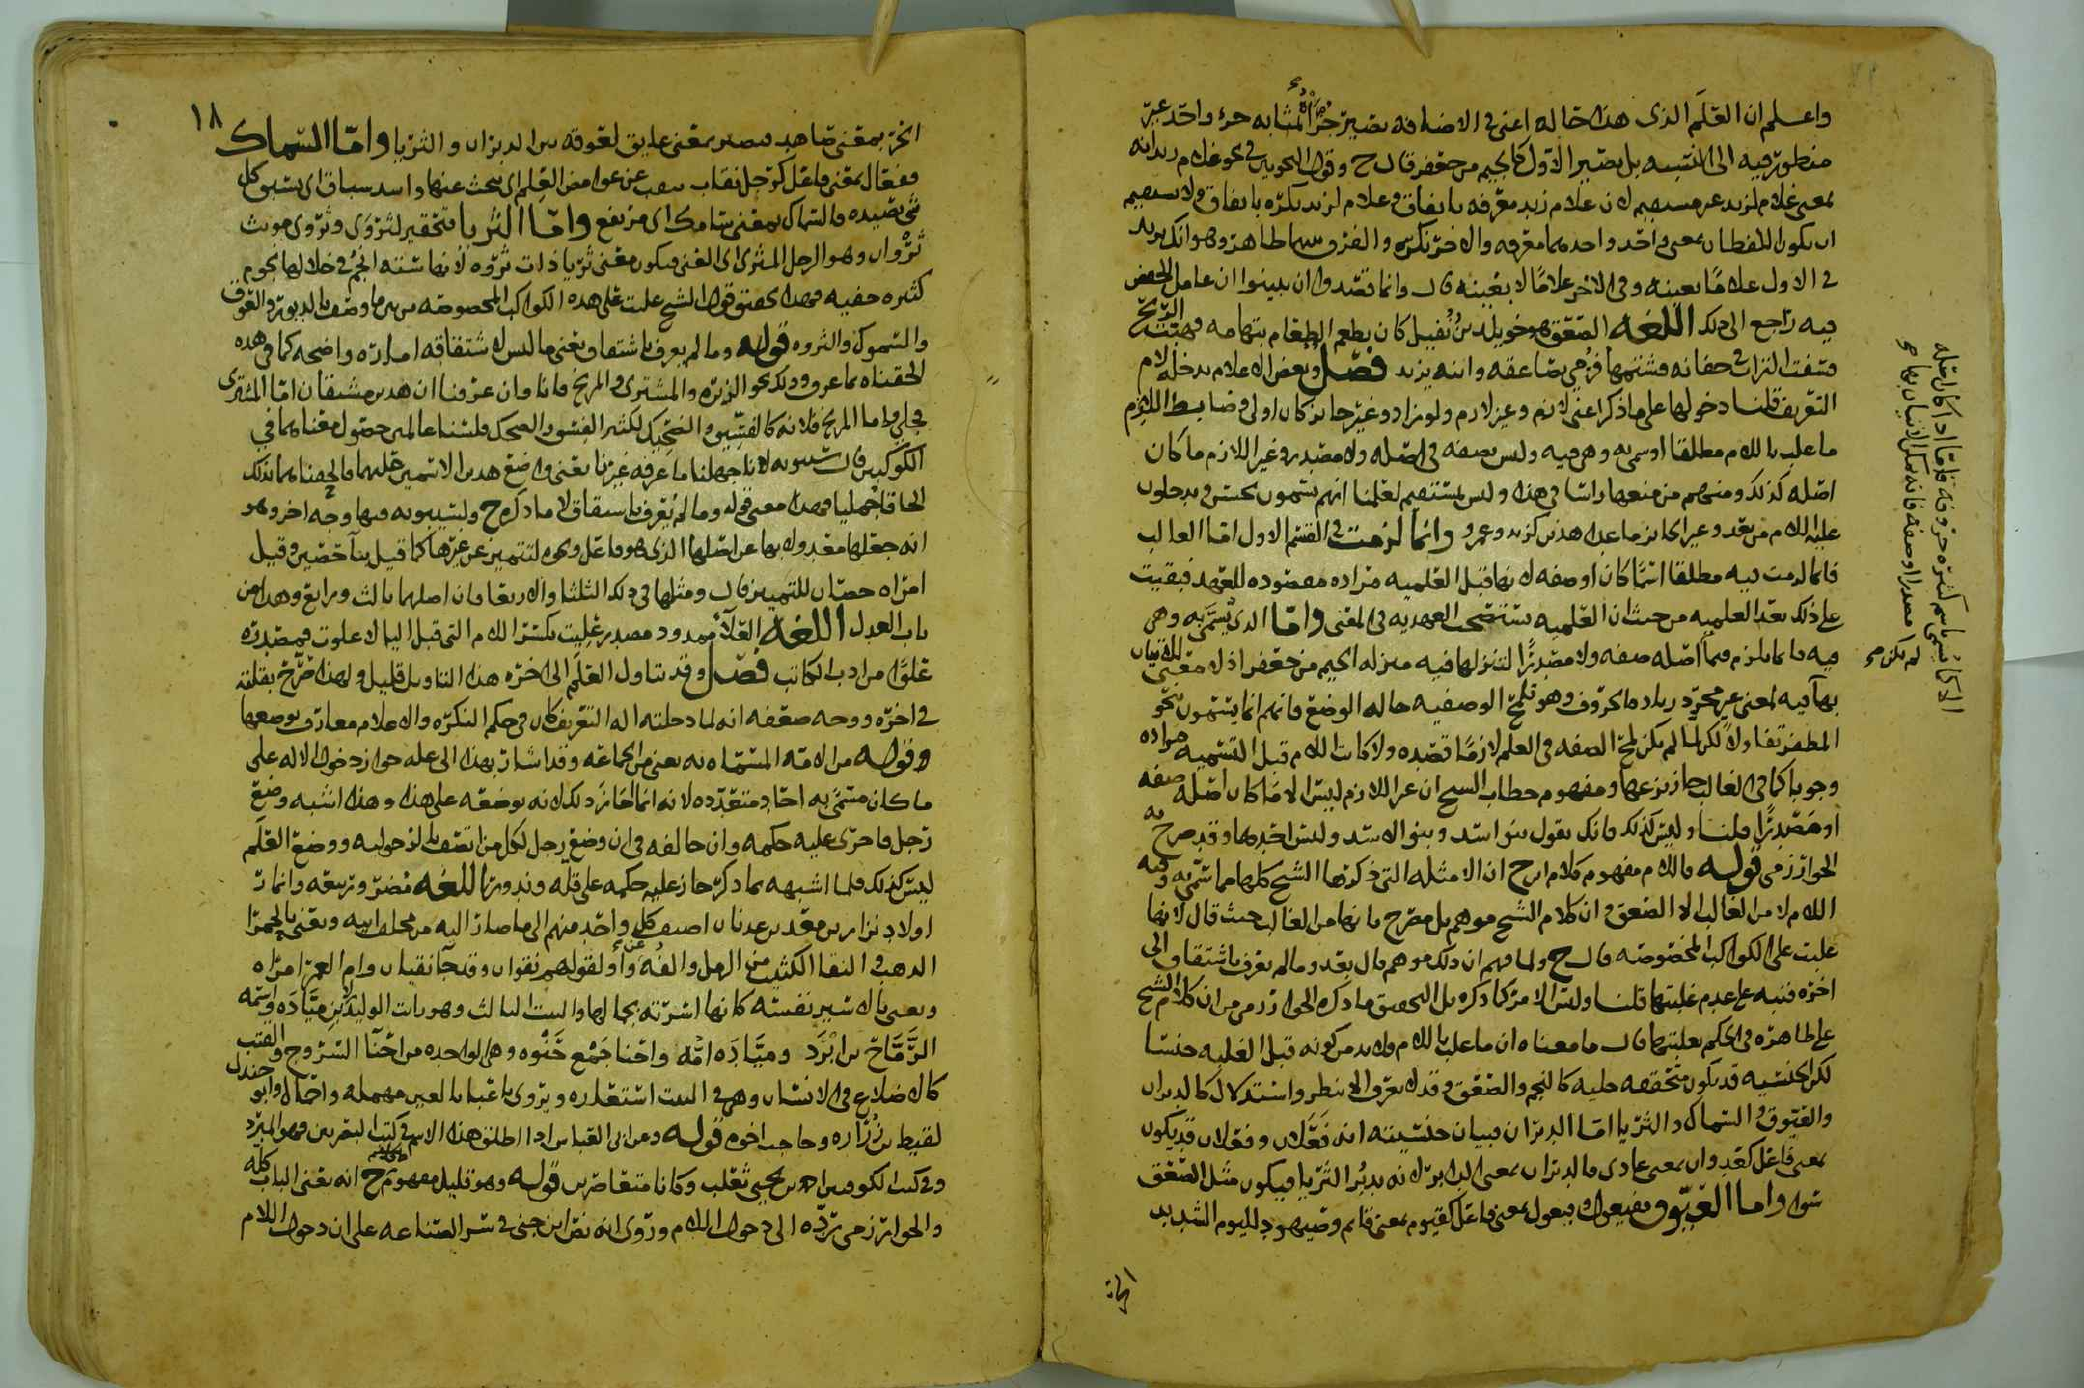 واعلم ان العلم الذى هذا حاله اعنى فى الاضافه يصير جزؤاه بمثابه حرف واحد غير
منظور فيه الى النسبه بل يصير الاول كالجيم من جعفر قال ح وقول النحويين فى نحو غلام زيد انه
بمعنى غلام لزيد غير مستقيم لان غلام زيد معرفه باتفاق وغلام لزيد نكره باتفاق ولا يستقيم
ان يكون اللفظان بمعنى واحد واحدهما معرفه والاخر نكره والفرق بينهما ظاهر وهو انك تريد
فى الاول غلاما بعينه وفى الاخر غلاما لا بعينه قال وانما قصدوا ان يبينوا ان عامل الخفض
فيه راجع الى ذلك اللغه الصعق هو خويلد بن نفيل كان يطعم الطعام بتهامه فهبت الريح
فسفت التراب فى جفانه فشتمها فرمى بصاعقه وابنه يزيد فصل وبعض الاعلام يدخله لام
التعريف قلنا دخولها على ما ذكر اعنى لازم وغير لازم ولو زاد وغير جايز كان اولى وضابط اللازم
ما غلب باللام مطلقا او سمى به وهى فيه وليس بصفه فى اصله ولا مصدر وغير اللازم ما كان
اصله كذلك ومنهم من منعها راسا فى هذا وليس بمستقيم لعلمنا انهم يسمون بحسن ويدخلون
عليه اللام من بعد وغير الجايز ما عدا هذين كزيد وعمرو وانما لزمت فى القسم الاول اما الغالب
فانما لزمت فيه مطلقا اسما كان او صفه لانها قبل العلميه مراده مقصوده للعهد فبقيت
على ذلك بعد العلميه من حيث ان العلميه تستصحب العهديه فى المعنى واما الذى يسمى به وهى
فيه فانما يلزم فيما اصله صفه ولا مصدرا لتنزلها فيه منزله الجيم من جعفر اذ لا معنى للاتيان
بها فيه لمعنى غير مجرد زياده الحروف وهو تلمح الوصفيه حاله الوضع فانهم انما يسمون نحو
المظفر تفاولا لكن لما لم يكن لمح الصفه فى العلم لازما قصده ولا كانت اللام قبل التسميه مراده
وجوبا كما فى الغالب جاز نزعها ومفهوم خطاب الشيخ ان غير اللازم ليس الا ما كان اصله صفه
او مصدرا قلنا وليس كذلك فانك تقول بنو اسد وبنو الاسد وليس احدهما وقد صرح به
الخوارزمى قوله فاللام مفهوم كلام ابن ح ان الامثله التى ذكرها الشيخ كلها مما سمى به وفيه
اللام لا من الغالب الا الصعق وان كلام الشيخ موهم بل مصرح بانها من الغالب حيث قال لانها
غلبت على الكواكب المخصوصه قال ح ولما فهم ان ذلك موهم قال بعد وما لم يعرف باشتقاق الى
اخره فنبه على عدم غلبتها قلنا وليس الامر كما ذكره بل التحقيق ما ذكره الخوارزمى من ان كلام الشيخ
على ظاهره فى الحكم بغلبتها قال ما معناه ان ما غلب باللام ولابد من كونه قبل الغلبه جنسا
لكن الجنسيه قد يكون متحققه جليه كالنجم والصعق وقد لا يعرف الا بنظر واستدلال كالدبران
والعيوق والسماك والثريا اما الدبران فبيان جنسيته انه فعلان وفعلان قد يكون
بمعنى فاعل كعدوان بمعنى عادى فالدبران بمعنى الدابر لانه يدبر الثريا فيكون مثل الصعق
سوا واما العيوق ففيعول وفيعول بمعنى فاعل كقيوم بمعنى قايم وصيهود لليوم الشديد
الحر
لم يكن صح
١٨
الحر بمعنى صاهد فيصير بمعنى عايق لعوقه بين الدبران والثريا واما السماك
ففعال بمعنى فاعل كرجل نقاب ينقب عن غوامض العلم اى يبحث عنها واسد سباق اى يسبق كل
شى يصيده فالسماك بمعنى سامك اى مرتفع واما الثريا فتحقير لثروى وثروى مونث
ثروان وهو الرجل المثرى اى الغنى فيكون معنى ثريا ذات ثروه لانها سته انجم فى خلالها نجوم
كثيره خفيه فهذا تحقيق قول الشيخ غلبت على هذه الكواكب المخصوصه من بين ما وصف بالدبور والعوق
والسموك والثروه قوله وما لم يعرف باشتقاق يعنى ما ليس لاشتقاقه اماره واضحه كما فى هذه
الحقناه بما عرف وذلك نحو الزهره والمشترى والمريخ فانا وان عرفنا ان هذين مشتقان اما المشترى
فجلى واما المريخ فلانه كالفسيق والضحيك لكثير الفسق والضحك فلسنا عالمين حصول معناهما فى
الكوكبين قال سيبويه لانا جهلنا ما عرفه غيرنا يعنى واضع هذين الاسمين عليهما فالحقناهما بذلك
الحاقا جمليا فهذا معنى قوله وما لم يعرف باشتقاق لا ما ذكره ح ولسيبويه فيها وجه اخر وهو
انه جعلها معدولا بها عن اصلها الذى هو فاعل ونحوه لتتميز عن غيرها كما قيل بنا حصين وقيل
امراه حصان للتمييز قال ومثلها فى ذلك الثلثا والاربعا فان اصلهما ثالث ورابع وهذا من
باب العدل اللغه العلاء ممدود مصدر عليت بكسر اللام التى قبل اليا لا علوت فمصدره
علوا من ادب الكاتب فصل وقد يتاول العلم الى اخره هذا التاويل قليل ولهذا صرح بقلته
فى اخره ووجه صعفه انه لما دخلته اله التعريف كان فى حكم النكره والاعلام معارف بوضعها
وقوله من الامه المسماه به يعنى من الجماعه وقد اشار بهذا الى عله جواز دخول الاله على
ما كان مسمى به احاد متعدده لانه انما جاز ذلك لانه بوضعه على هذا وهذا اشبه وضع
رجل فاجرى عليه حكمه وان خالفه فى ان وضع رجل لكل من اتصف بالرجوليه ووضع العلم
ليس كذلك فلما اشبهه بما ذكر جاز عليه حكمه على قله وندور اللغه مضر وربيعه وانمار
اولاد نزار بن معد بن عدنان اضيف كل واحد منهم الى ما صار اليه من مخلف ابيه ويعنى بالحمرا
الذهب والنقا الكثيب من الرمل والفه عن واو لقولهم نقوان وقد جا نقيان وام العمرو امراه
ويعنى بالاسير نفسه كانها اسرته بجمالها والبيت الثالث وهو رايت الوليد لابن مياده واسمه
الرماح بن ابرد ومياده امه واحنا جمع حنوه وهى الواحده من احنآ السروج والقتب
كالاضلاع فى الانسان وهى فى البيت استعاره ويروى باعبا بالعين مهمله واحمال وابو جندل
لقيط بن زراره وحاجب اخوه قوله وعن ابى العباس اذا اطلق هذا الاسم فى كتب البصريين فهو المبرد
وفى كتب الكوفيين احمد بن يحيى ثعلب وكانا متعاصرين قوله وهو قليل مفهوم كلام ح انه يعنى الباب كله
والخوارزمى يرده الى دخول اللام وروى انه نص ابن جنى فى سر الصناعه على ان دخول اللام